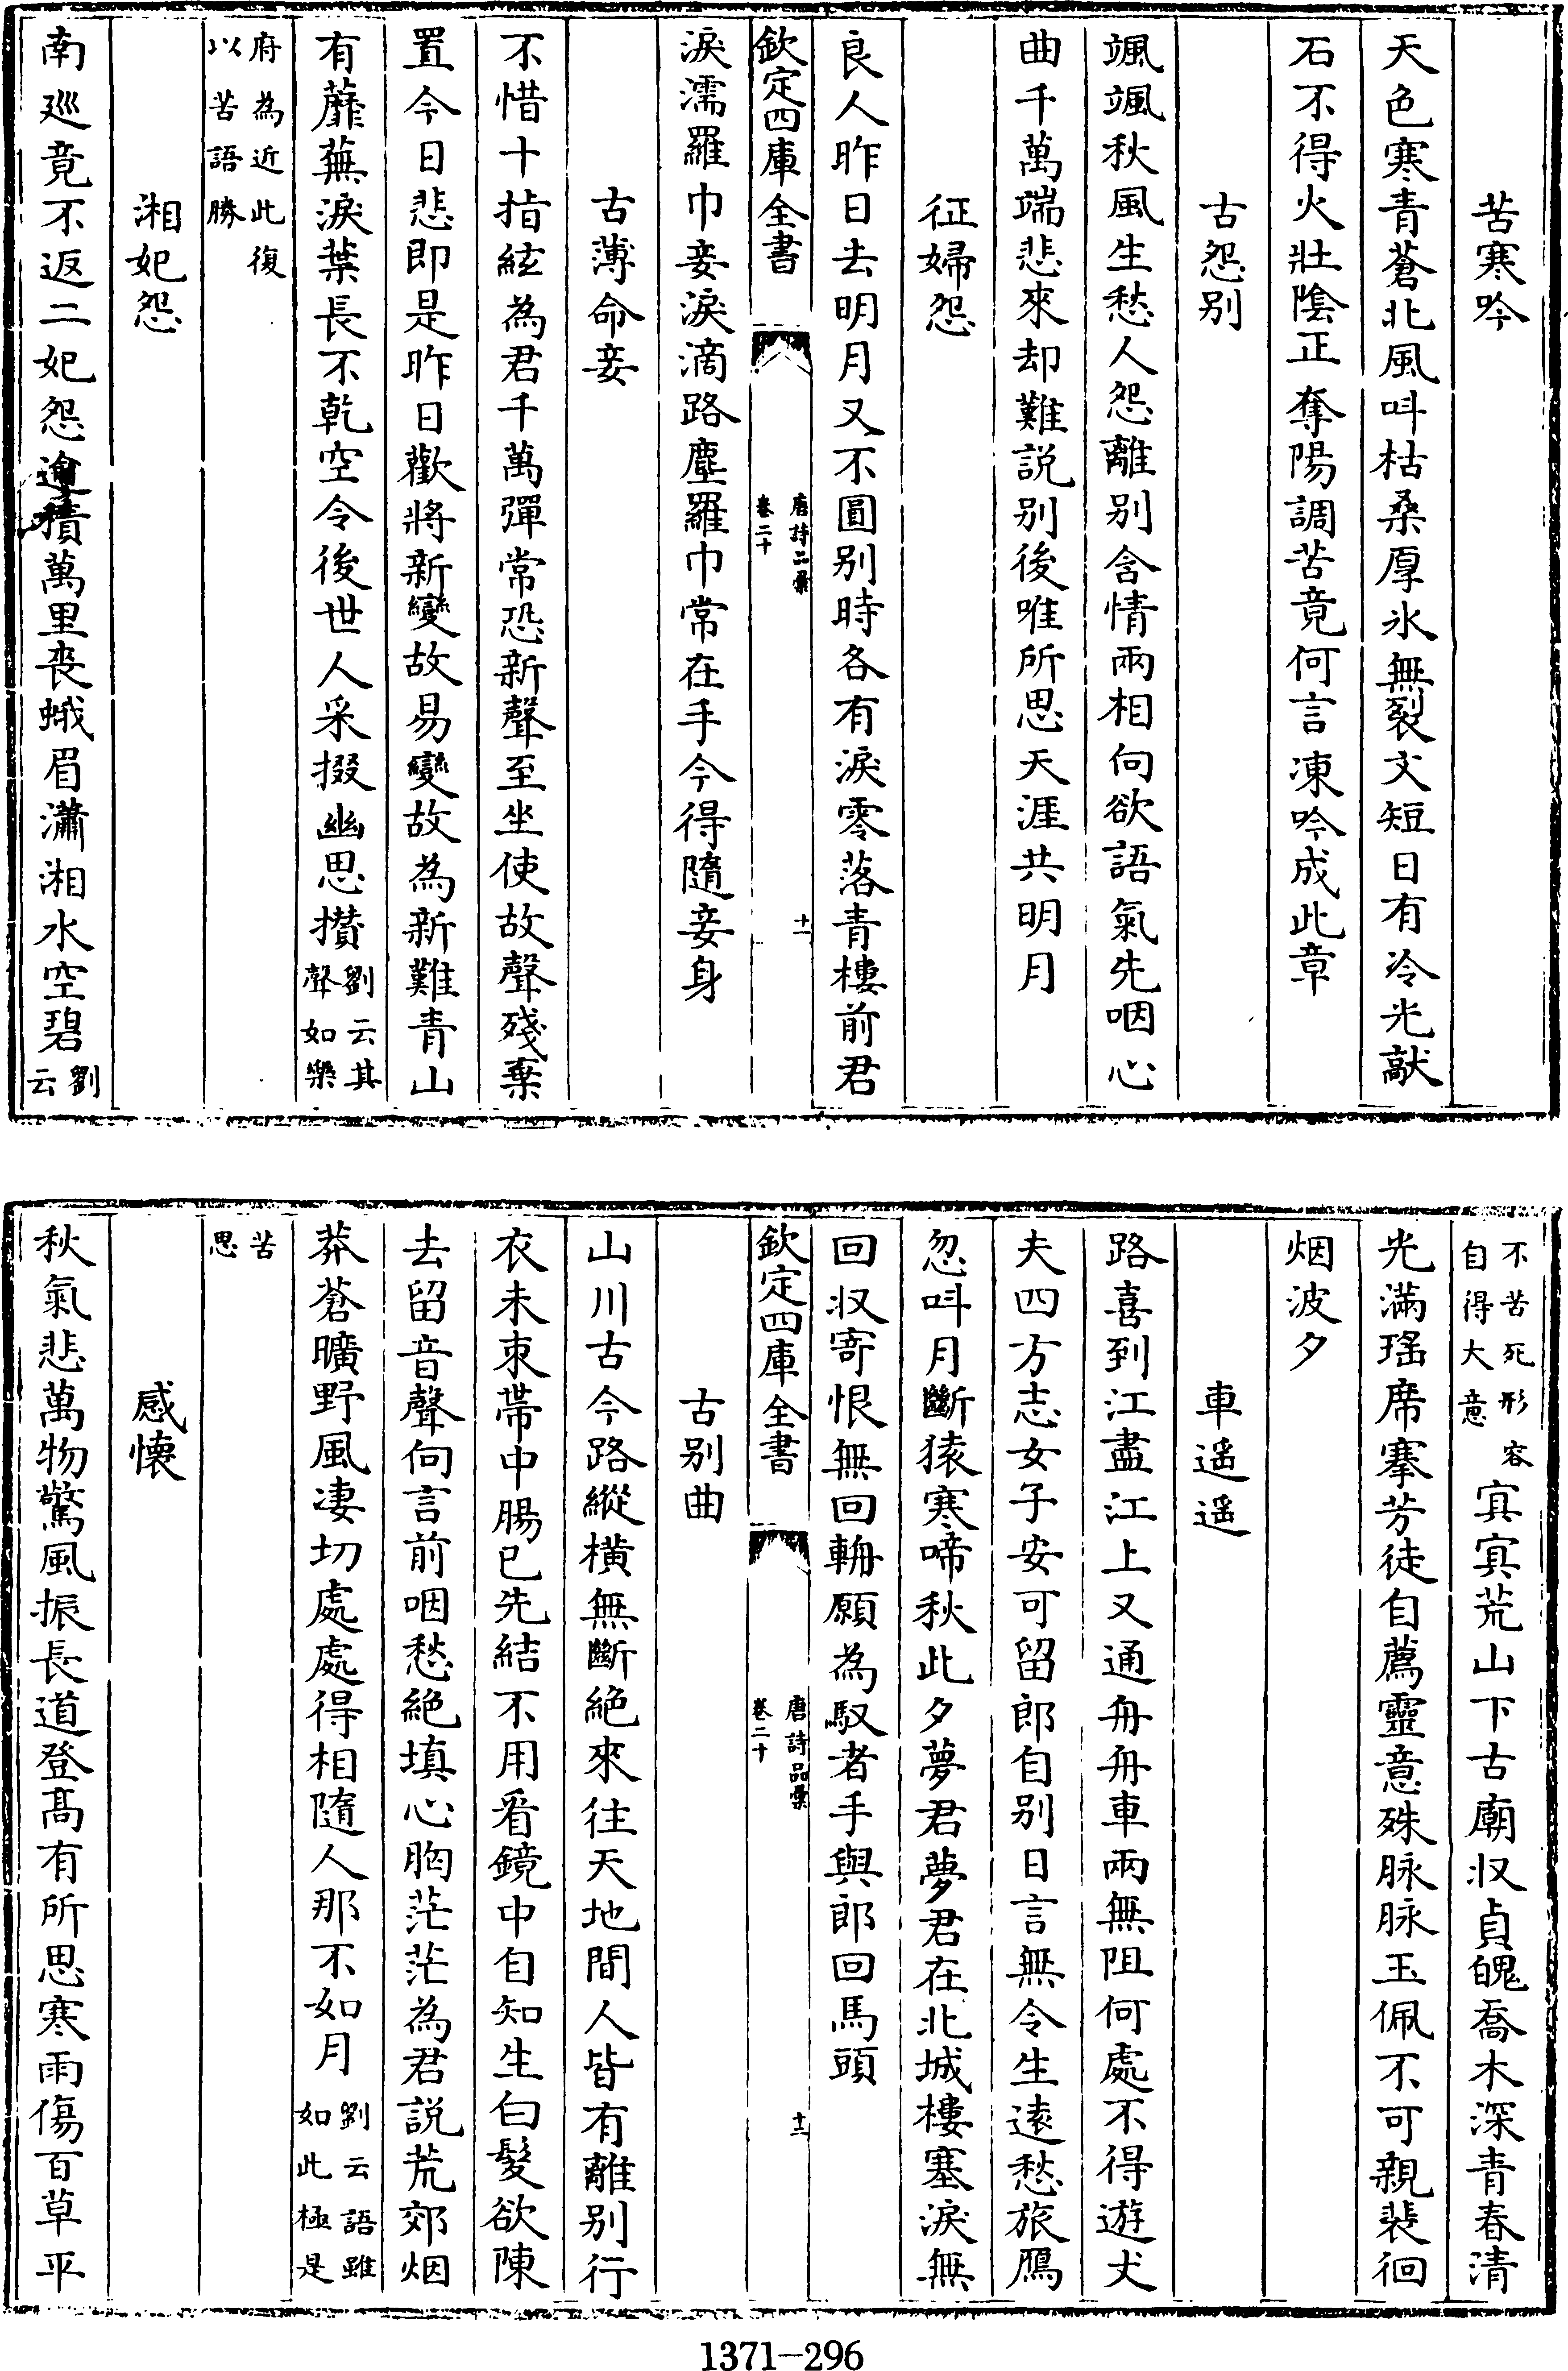 苦寒吟
天色寒青蒼北風呌枯桑厚氷無裂文短日有冷光敲
石不得火壯陰正奪陽調苦竟何言凍吟成此章
古怨别
颯颯秋風生愁人怨離别含情兩相向欲語氣先咽心
曲千萬端悲來却難説别後唯所思天涯共明月
征婦怨
良人昨日去明月又不圓别時各有淚零落青樓前君
欽定四庫全書
唐詩品彙
卷二十
十一
淚濡羅巾妾淚滴路塵羅巾常在手今得隨妾身
古薄命妾
不惜十指絃為君千萬彈常恐新聲至坐使故聲殘棄
置今日悲即是昨日歡將新變故易變故為新難青山
有蘼蕪淚葉長不乾空令後世人采掇幽思攅劉云其聲如樂
府為近此復以苦語勝
湘妃怨
南巡竟不返二妃怨逾積萬里喪蛾眉瀟湘水空碧劉云
不苦死形容自得大意㝠㝠荒山下古廟収貞魄喬木深青春清
光滿瑤席搴芳徒自薦靈意殊脉脉玉佩不可親裴徊
烟波夕
車遥遥
路喜到江盡江上又通舟舟車兩無阻何處不得遊丈
夫四方志女子安可留郎自别日言無令生逺愁旅鴈
忽呌月斷猿寒啼秋此夕夢君夢君在北城樓塞淚無
回収寄恨無回輈願為馭者手與郎回馬頭
欽定四庫全書
唐詩品彙
卷二十
十二
古别曲
山川古今路縱橫無斷絶來往天地間人皆有離别行
衣未束帶中腸已先結不用看鏡中自知生白髮欲陳
去留音聲向言前咽愁絶填心胸茫茫為君説荒郊烟
莽蒼曠野風凄切處處得相隨人那不如月劉云語雖如此極是
苦思
感懷
秋氣悲萬物驚風振長道登髙有所思寒雨傷百草平
1371-296